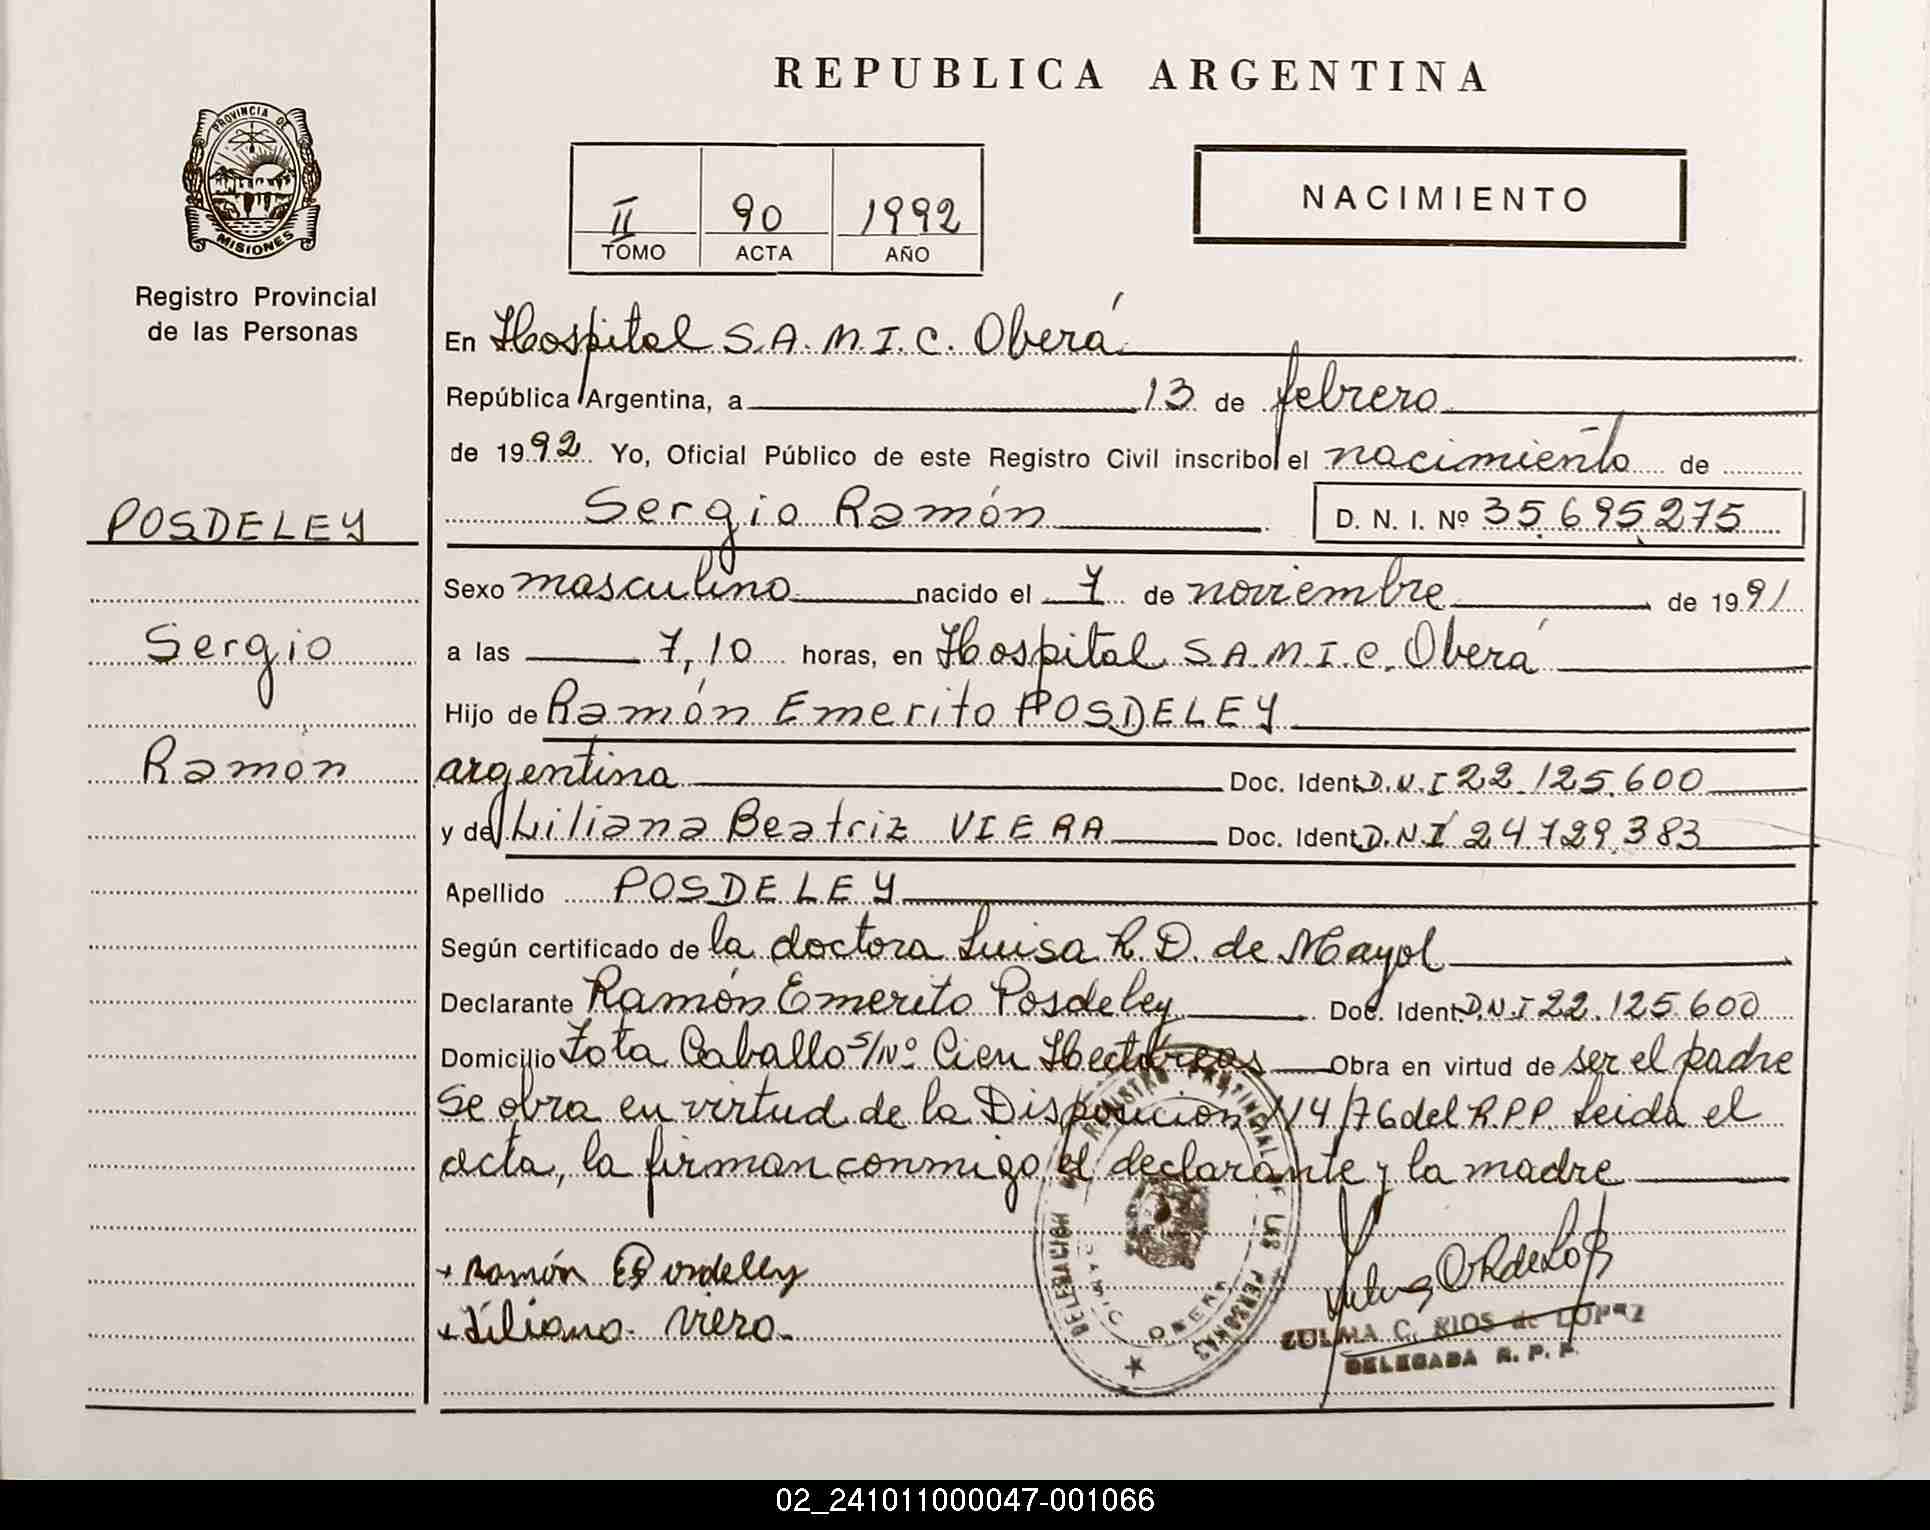 REPUBLICA ARGENTINA
PROVINCIA DE
MISIONES
Registro Provincial
de las Personas
II 90 1992
TOMO ACTA AÑO
NACIMIENTO
POSDELEY
Sergio
Ramón
En Hospital S.A.M.I.C. Oberá
República Argentina, a 13 de febrero
de 1992 Yo, Oficial Público de este Registro Civil inscribo el nacimiento de
Sergio Ramón D. N. I. Nº 35.695.275
Sexo masculino nacido el 7 de noviembre de 1991
a las 7,10 horas, en Hospital S.A.M.I.C. Oberá
Hijo de Ramón Emerito POSDELEY
argentina Doc. Ident. D.N.I 22.125.600
y de Liliana Beatriz VIERA Doc. Ident. D.N.I 24.729.383
Apellido POSDELEY
Según certificado de la doctora Luisa R. D. de Mayol
Declarante Ramón Emerito Posdeley Doc. Ident. D.N.I 22.125.600
Domicilio Caballo s/Nº Cien Hectáreas Obra en virtud de ser el padre
Se obra en virtud de la Disposicion 114/76 del R.P.P. Leida el
acta, la firman conmigo el declarante y la madre
DELEGACION REGISTRO PROVINCIAL DE LAS PERSONAS
OBERA
+ Ramón Posdeley
+ Liliana Viera
ZULMA C. RIOS de LOPEZ
DELEGADA R. P. P.
02_241011000047-001066